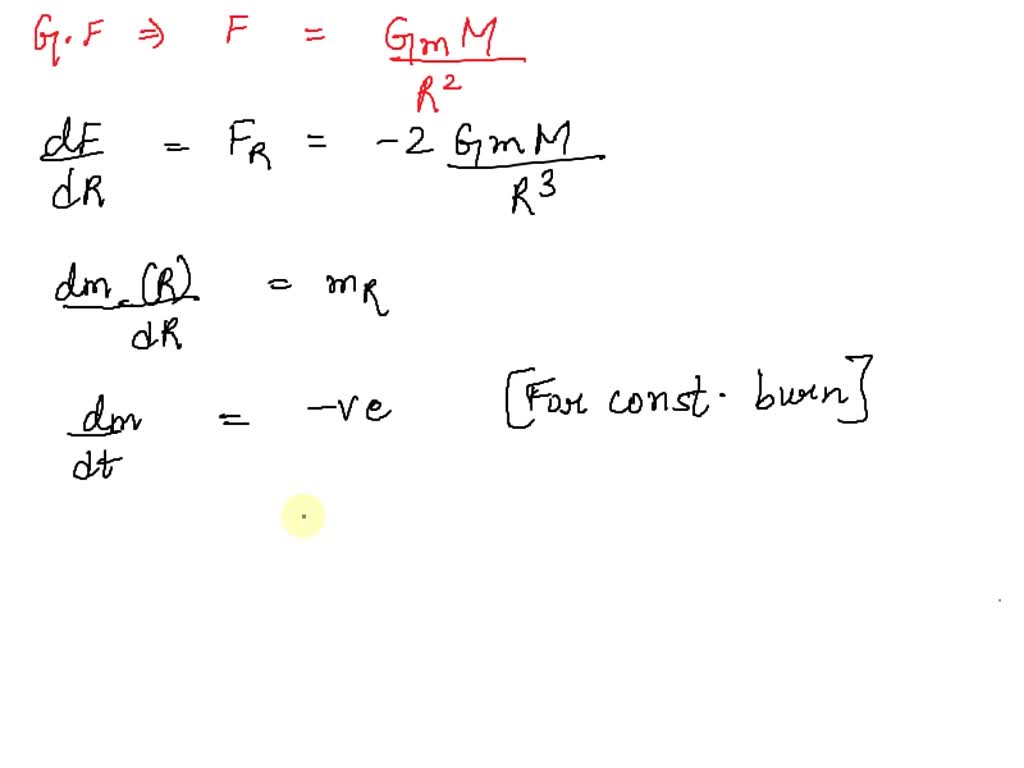 G.F ⇒ F = GmM/R²
dF/dR = F_R = -2 GmM/R³
dm(R)/dR = m_R
dm/dt = -ve [For const. burn]